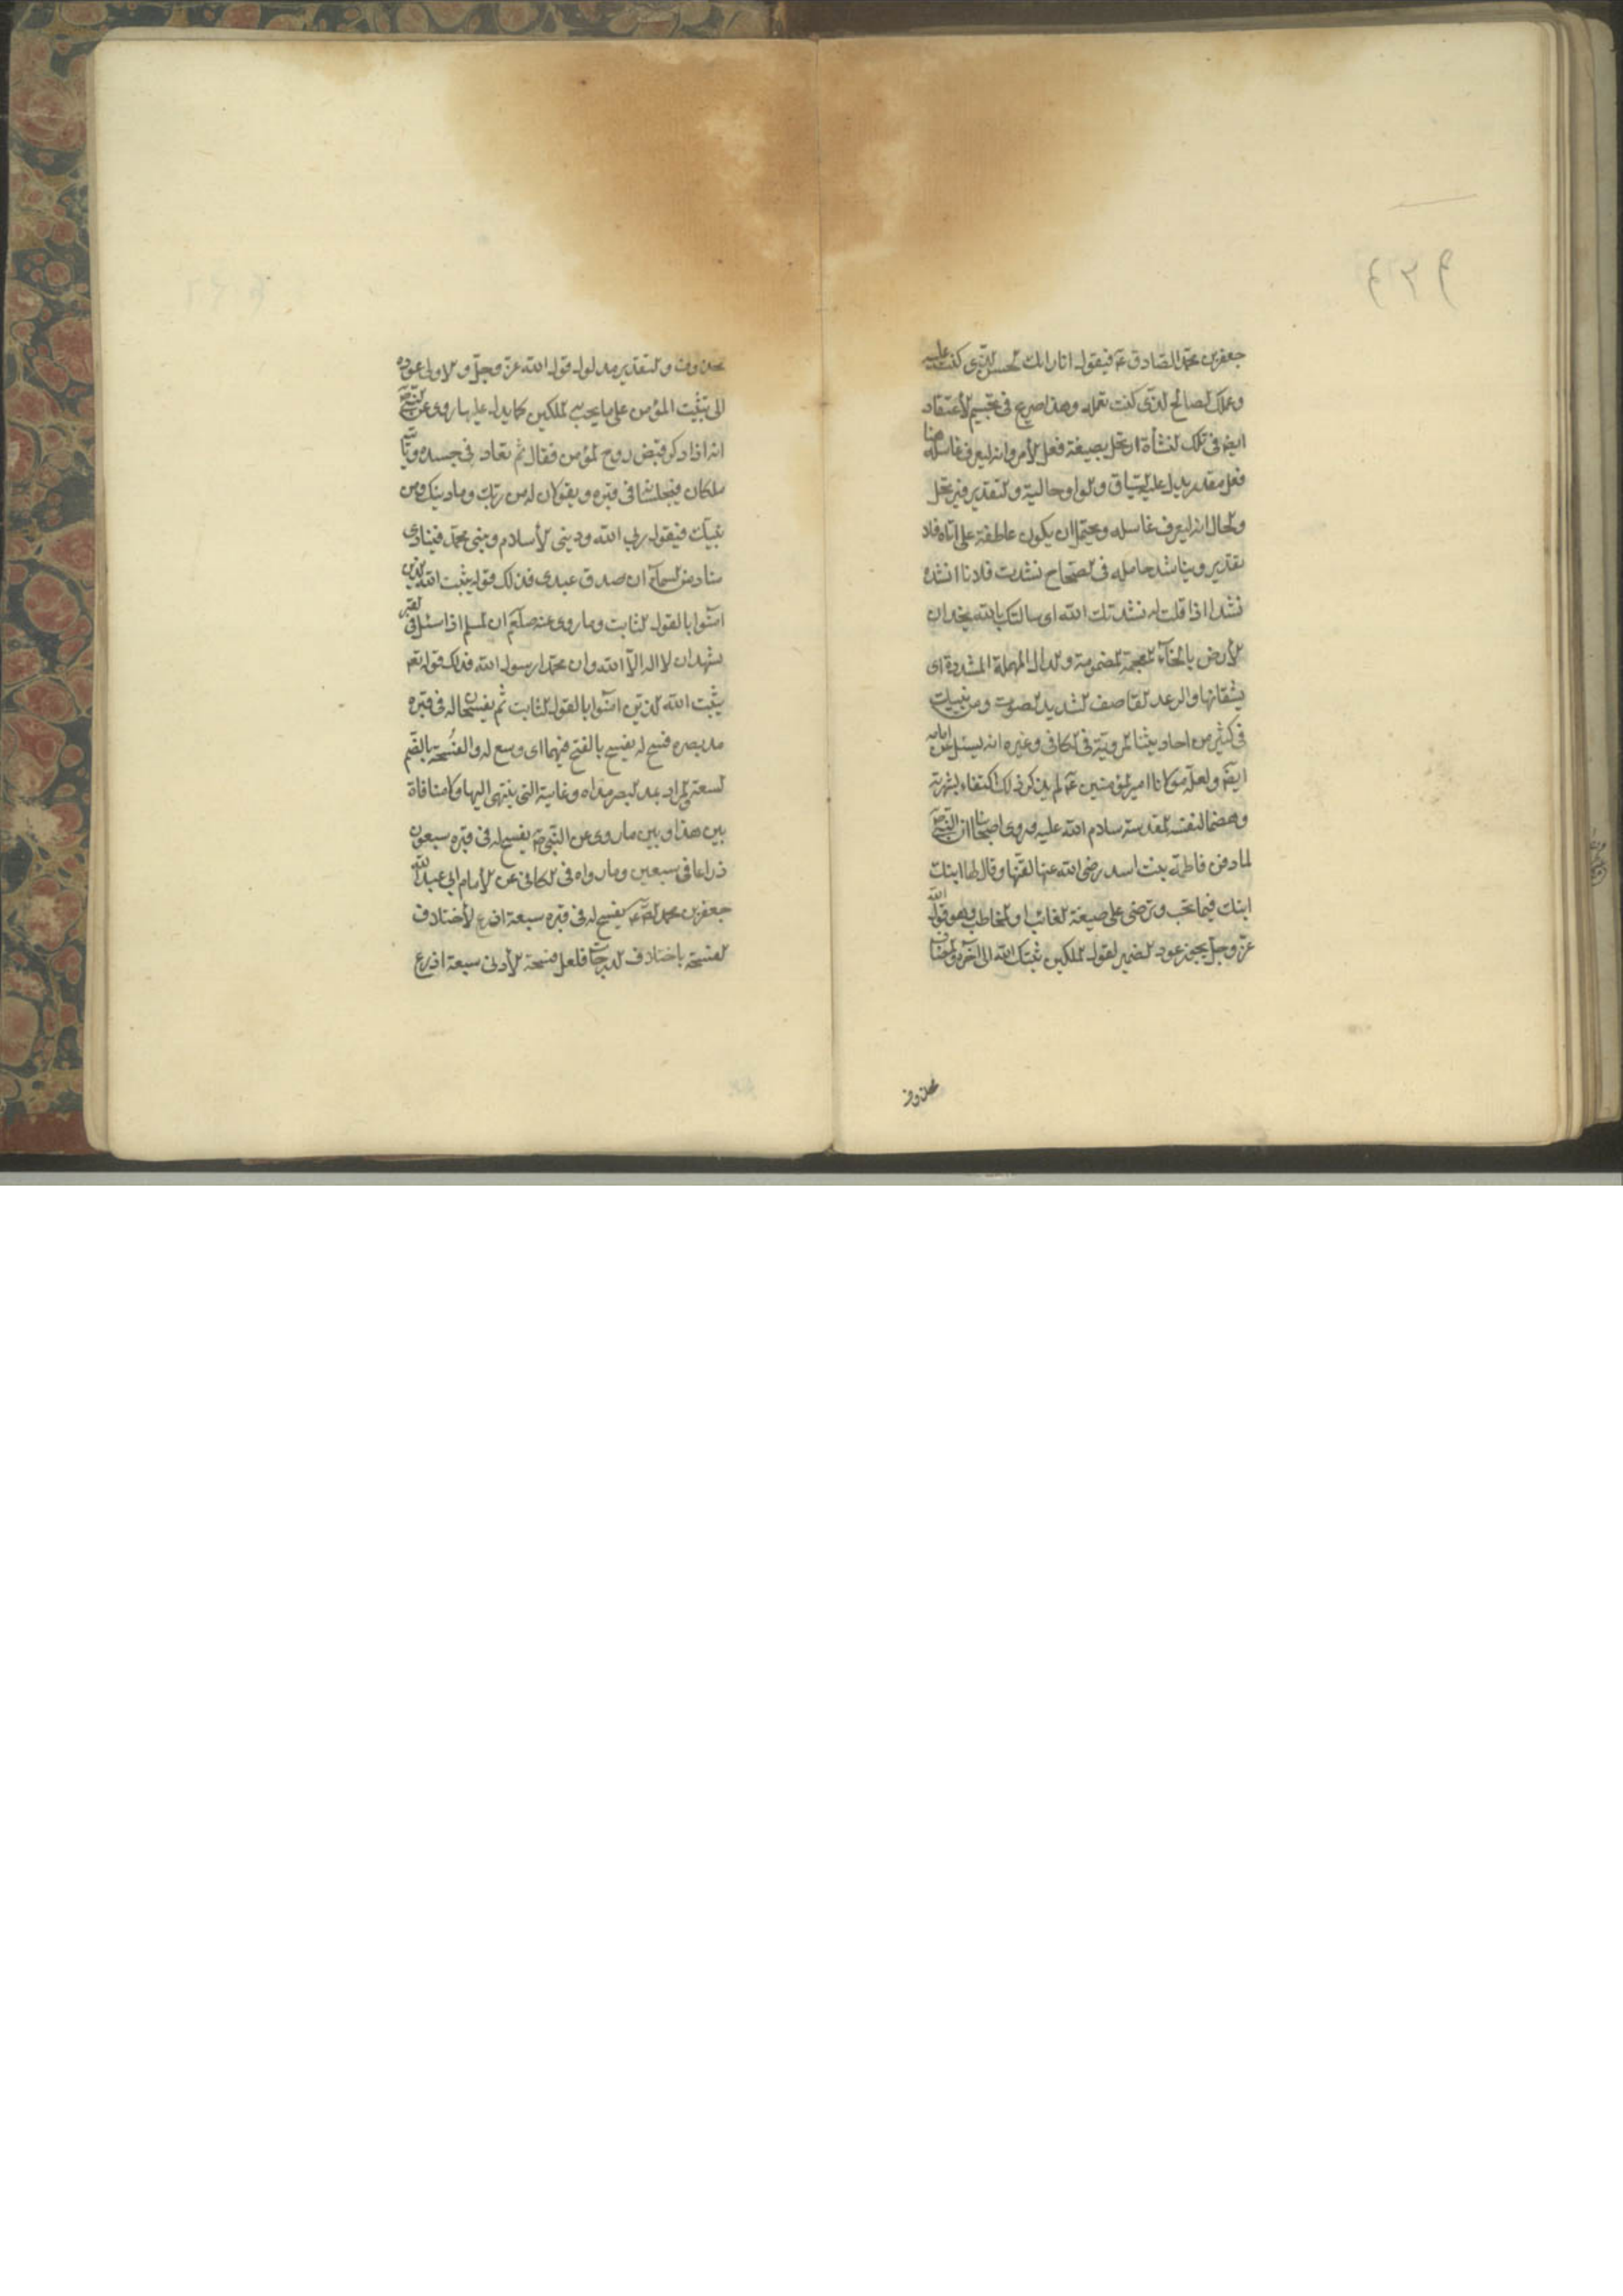 جعفر بن محمد الصادق ع فيقول انا رايك الحسن الذى كنت عليه
وعملك الصالح الذى كنت تعمله وهذا صريح فى تجسيم الأعتقاد
ايضا فى تلك النشأة ارتحل بصيغة فعل الأمر وانه ليعرف غاسله هنا
فعل مقدر يدل عليه السياق والواو حالية والتقدير فيرتحل
والحال انه ليعرف غاسله ويحتمل ان يكون عاطفة على اتاه فلا
تقدير ويناشد حامله فى الصحاح نشدت فلانا انشده
نشدا اذا قلت له نشدتك الله اى سالتك بالله يخدان
الأرض بالخاء المعجمة المضمومة والدال المهملة المشددة اى
يشقانها والرعد القاصف الشديد الصوت ومن نبيك
فى كثير من احاديثنا المروية فى الكافى وغيره انه يسئل عن امامه
ايضا ولعل مولانا امير المؤمنين ع لم يذكر ذلك اكتفاء بشهرته
وهضما لنفسه المقدسة سلام الله عليه وروى اصحابنا ان النبى ص
لما دفن فاطمة بنت اسد رضى الله عنها لقنها وقال لها ابنك
ابنك فيما تحب وترضى على صيغة الغائب او المخاطب وهو قول الله
عز وجل يجوز عود الضمير لقول الملكين ثبتك الله الى اخره والمضاف
محذوف
محذوف والتقدير مدلول قول الله عز وجل والاولى عوده
الى تثبيت المؤمن على ما يجيب الملكين كما يدل عليه ما روى عن النبى ص
انه اذا ذكر قبض روح المؤمن فقال ثم تعاد فى جسده وياتيه
ملكان فيجلسانه فى قبره ويقولان له من ربك وما دينك ومن
نبيك فيقول ربى الله ودينى الأسلام ونبيى محمد فينادى
مناد من السماء ان صدق عبدى فذلك قوله يثبت الله الذين
آمنوا بالقول الثابت وما روى عنه صلعم ان المسلم اذا سئل فى القبر
يشهد ان لا اله الا الله وان محمدا رسول الله فذلك قوله تع
يثبت الله الذين امنوا بالقول الثابت ثم يفسحان له فى قبره
مد بصره فسح له يفسح بالفتح فيهما اى وسع له والفُسحة بالضم
السعة والمراد بمد البصر مداه وغايته التى ينتهى اليها ولا منافاة
بين هذا وبين ما روى عن النبى ص يفسح له فى قبره سبعون
ذراعا فى سبعين وما رواه فى الكافى عن الأمام ابى عبد الله
جعفر بن محمد الصادق ع يفسح له فى قبره سبعة اذرع لأختلاف
الفسحة باختلاف الدرجات فلعل فسحة الأدنى سبعة اذرع